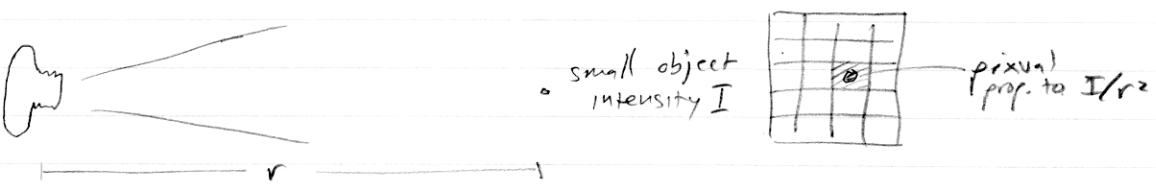 small object
intensity I
pixval
prop. to I/r²
r